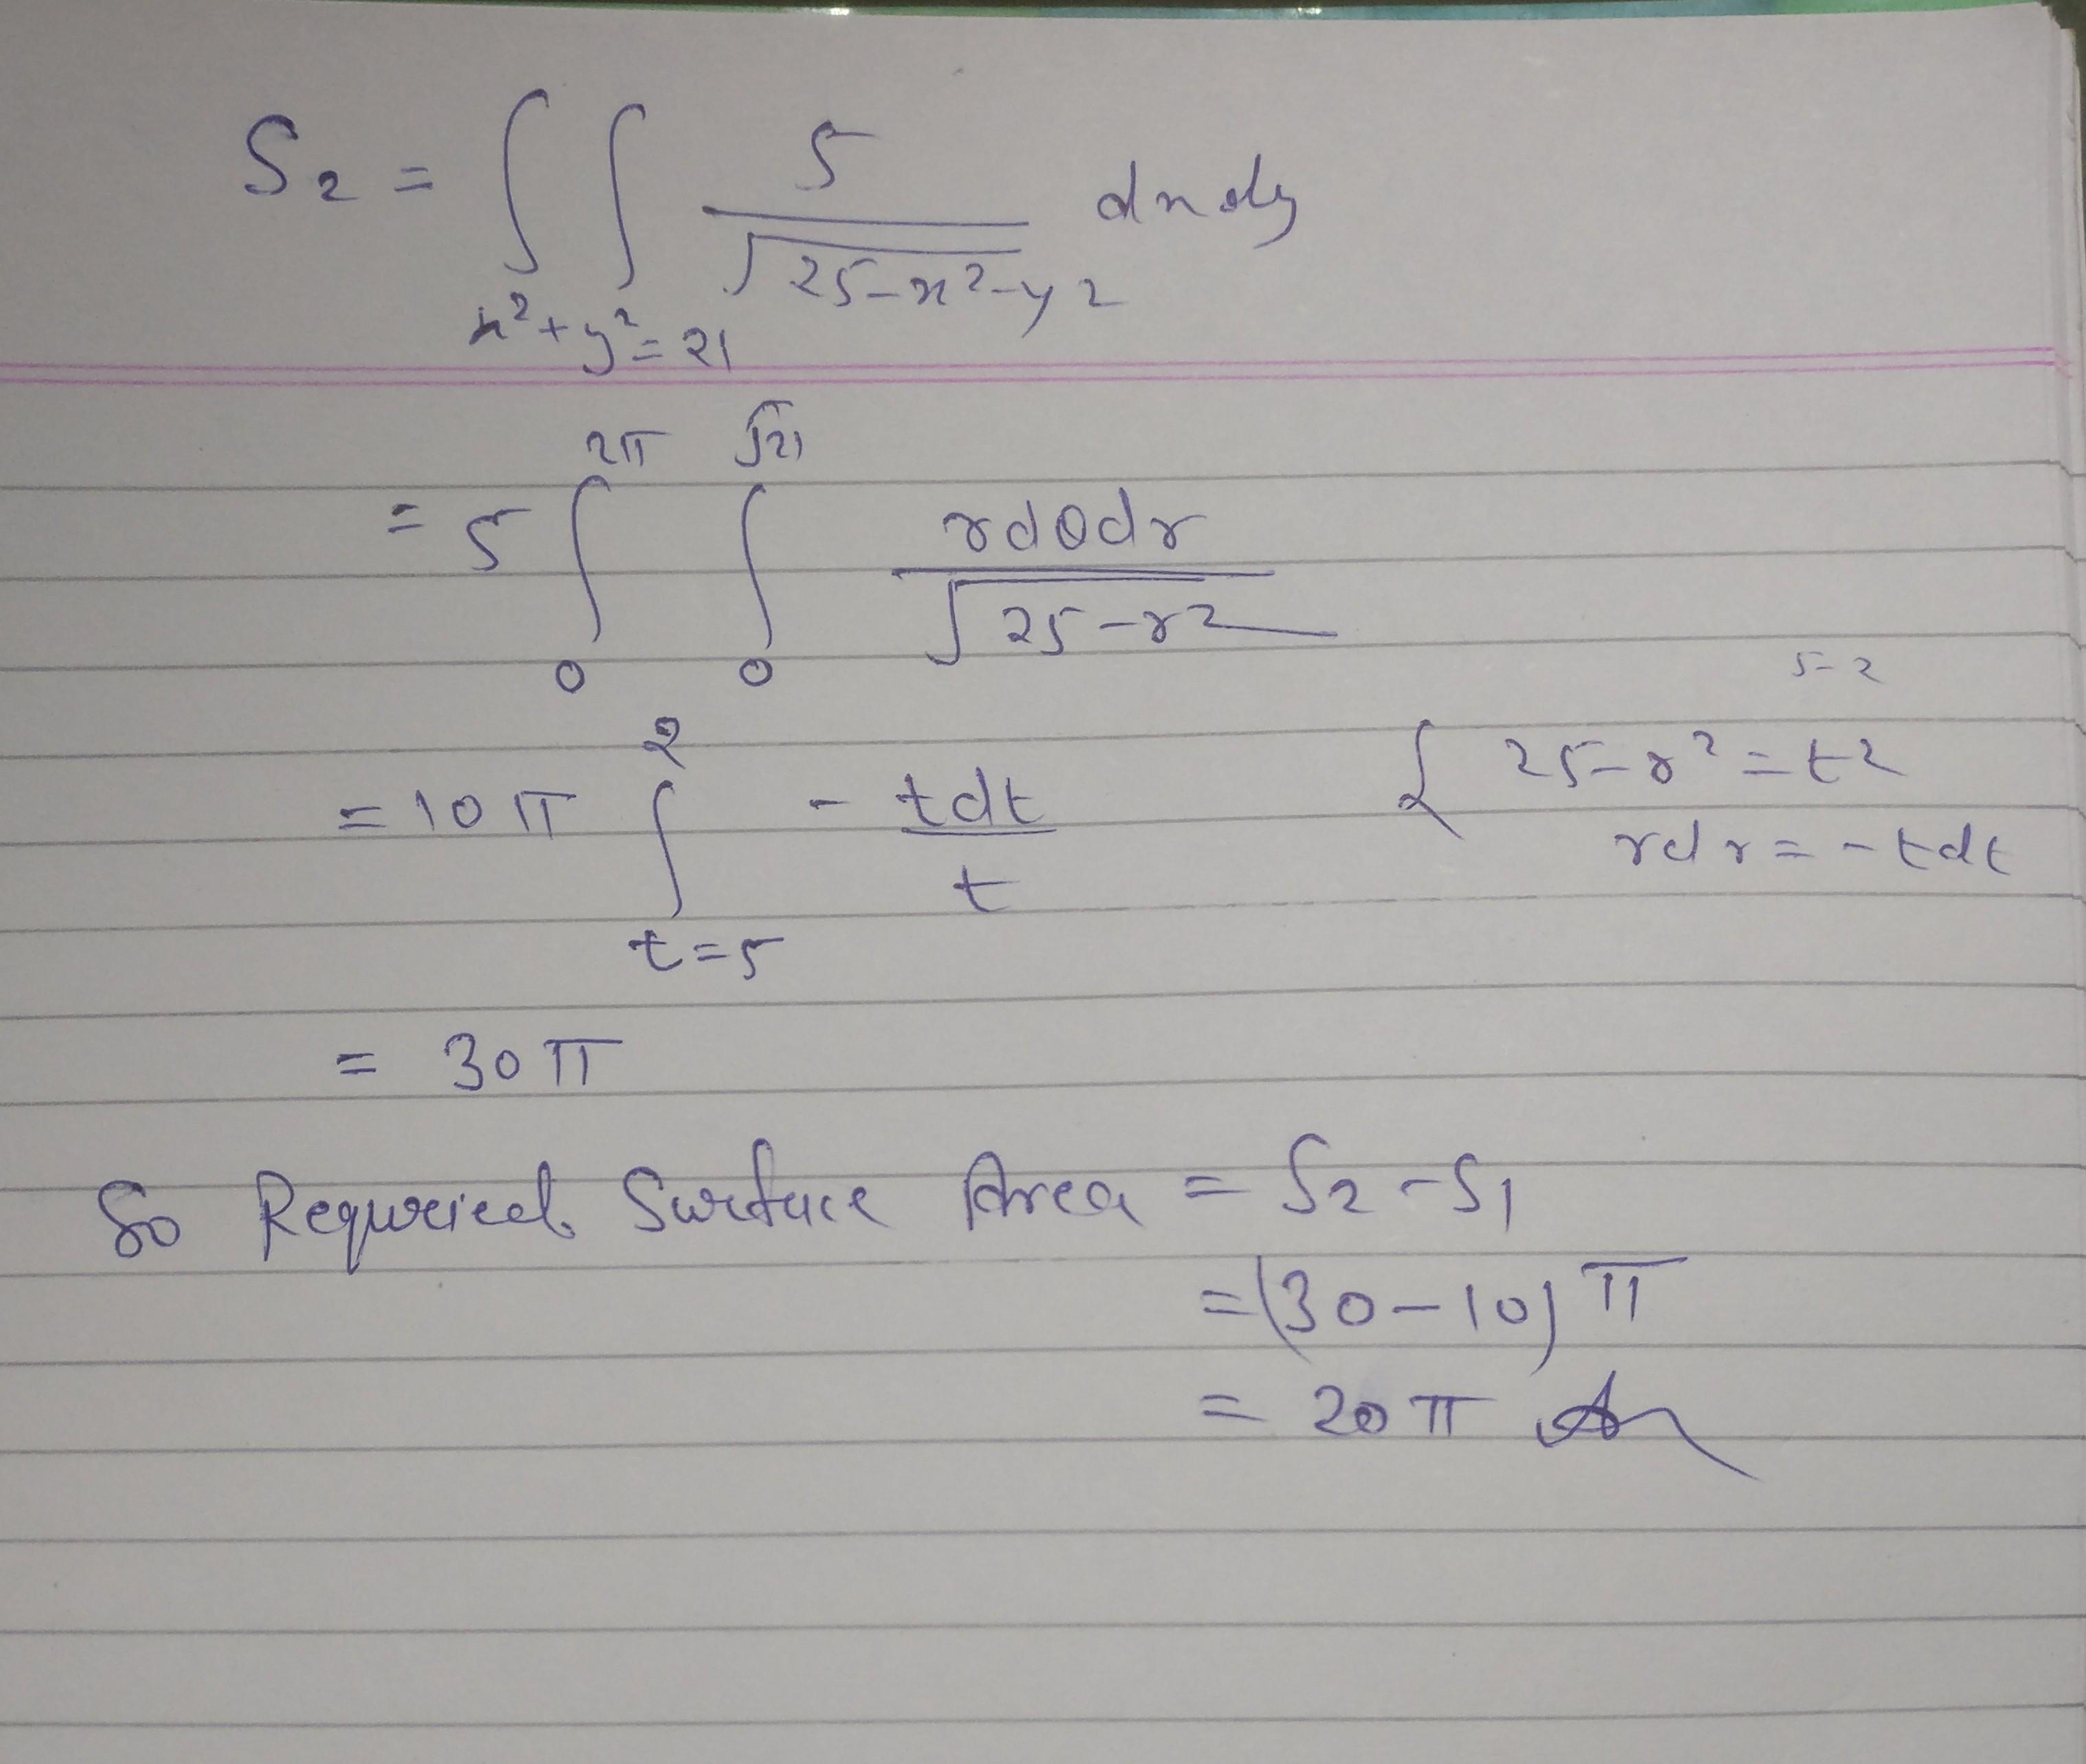 S₂ = ∫∫ 5 / √25-x²-y² dxdy
x²+y²=21
= 5 ∫₀^2π ∫₀^√21 rdθdr / √25-r²
5-2
= 10π ∫_t=5^2 - tdt / t { 25-r²=t²
rdr=-tdt
= 30π
So Requried Surface Area = S₂-S₁
=(30-10)π
= 20π